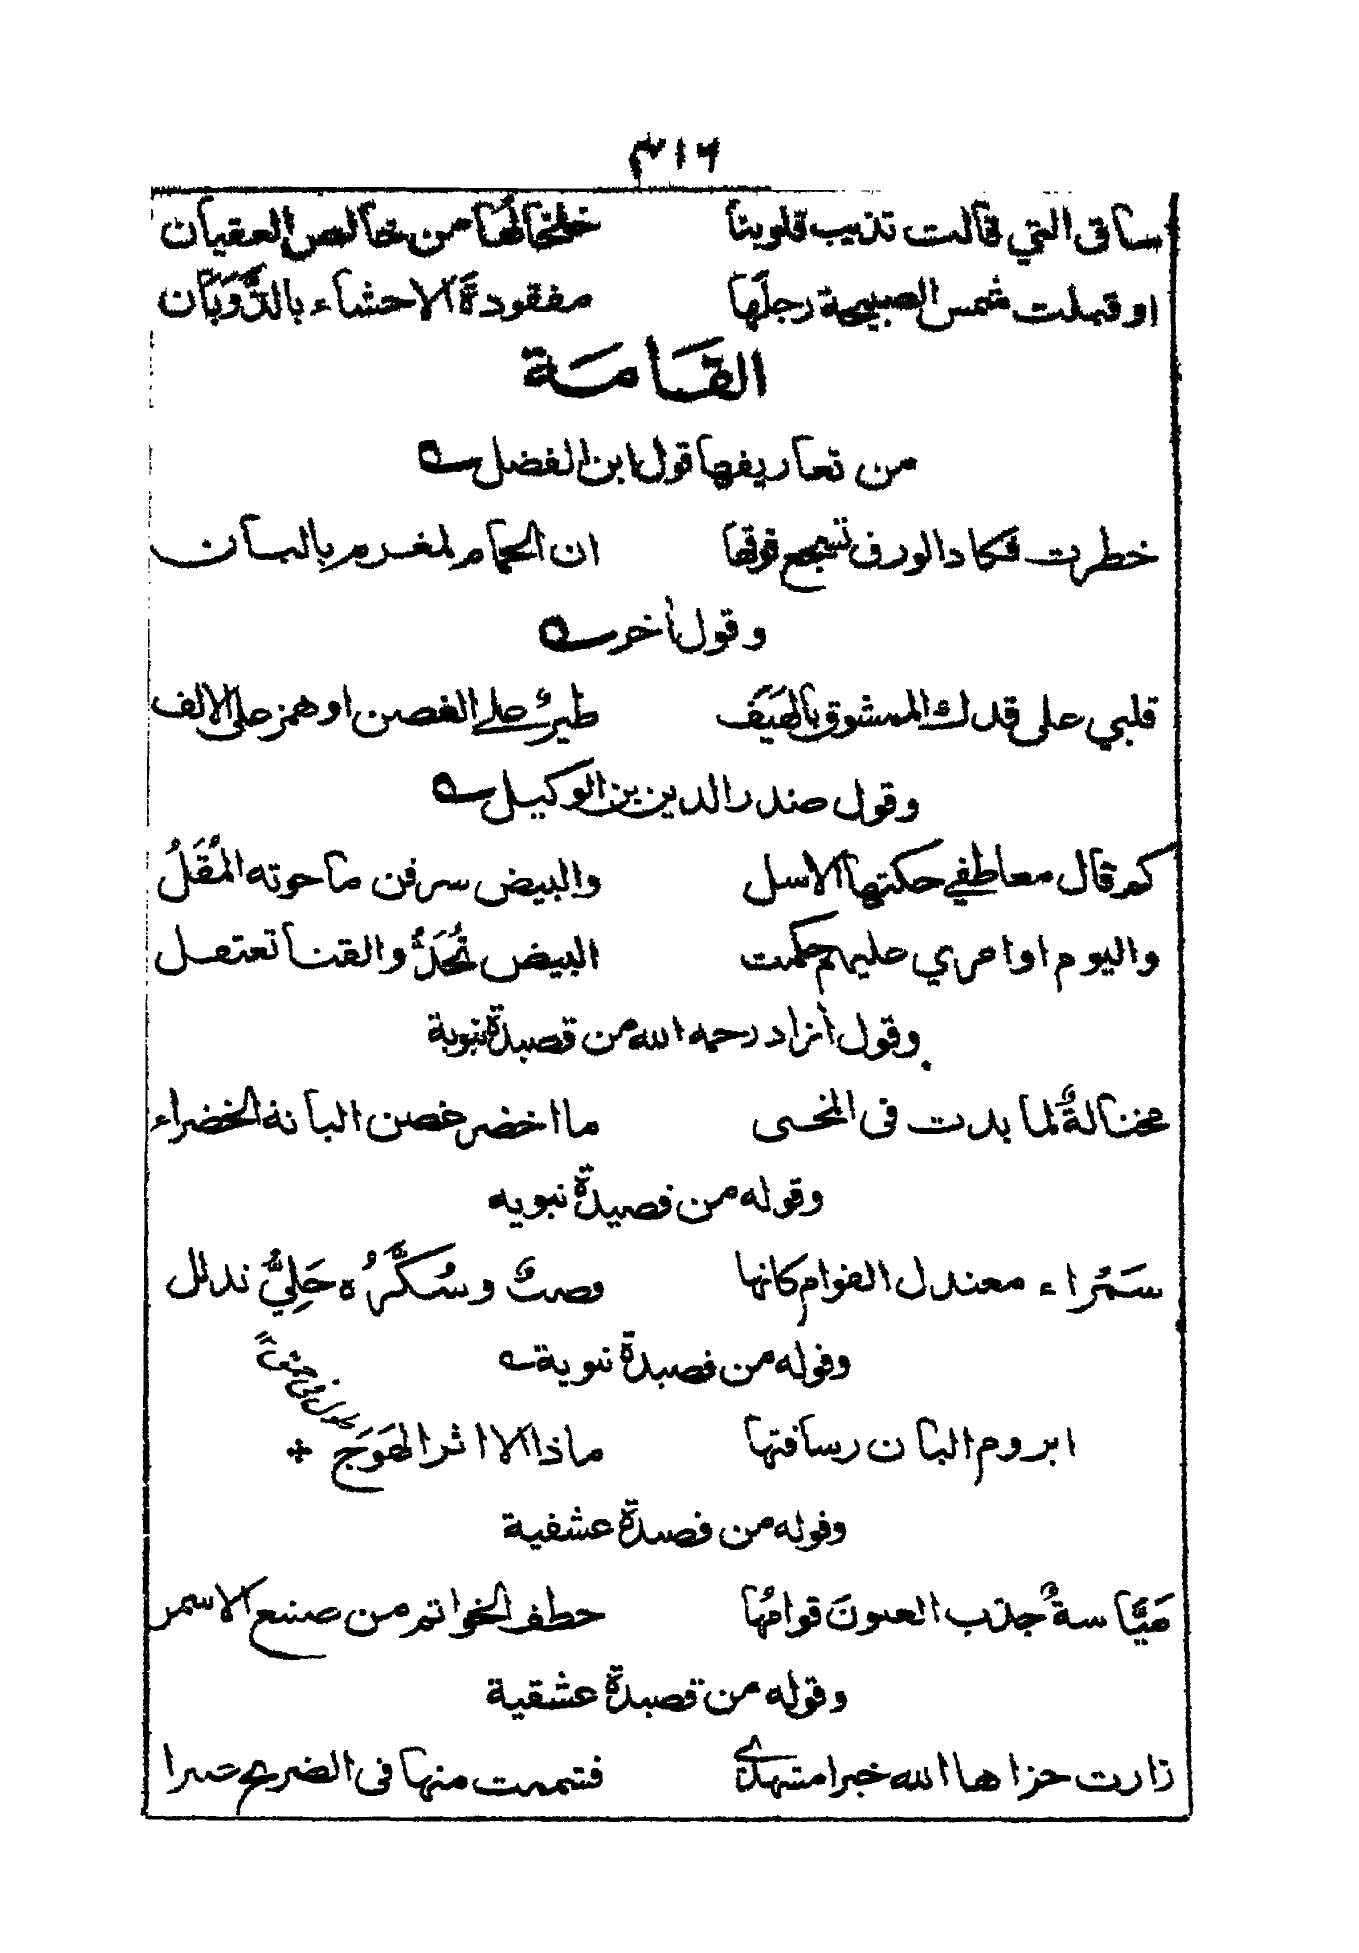 ٣١٦
ساق التي قالت تذيب قلوبنا خلخالها من خالص العقيان
او قبلت شمس الصبيحة رجلها مفقودة الاحشاء بالذَّوَبَان
القَامَة
من تعاريفها قول ابن الفضل
خطرت فكاد الورق تسجع فوقها ان الحمام لمغرم بالبان
وقول أخر
قلبي على قدك الممشوق بالهَيَف طير على الغصن او همز على الالف
وقول صدر الدين بن الوكيل
كم قال معاطفي حكتها الاسل والبيض سرقن ما حوته المُقَلُ
واليوم اوامري عليهم حكمت البيض تُحَدُّ والقنا تعتقل
وقول أزاد رحمه الله من قصيدة نبوية
مختالةٌ لما بدت فى المنحنى ما اخضر غصن البانة الخضراء
وقوله من قصيدة نبويه
سَمْراء معتدل القوام كانها وسُكَّرُه حَلِيٌّ
وقوله من قصيدة نبوية
ايروم البان رساقتها ماذا الا اثر الهَوَج
طول فى حمق
وقوله من قصيدة عشقية
ميَّاسةٌ جذب العيون قوامُها خطف الخواتم من صنيع الاسمر
وقوله من قصيدة عشقية
زارت جزاها الله خيرا فى الضريح